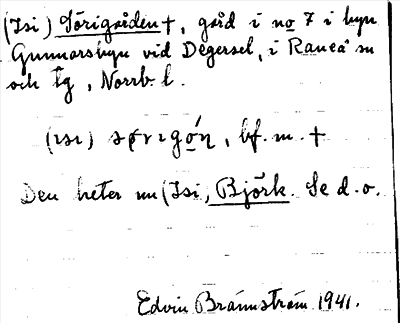 (Isi) Sörigården †, gård i no 7 i byn
Gunnarsbyn vid Degersel, i Råneå sn
och tg, Norrb. l.
(ɪsɪ) sørɪgón, bf. m. †
Den heter nu (Isi, Björk. Se d. o.
Edvin Brännström 1941.